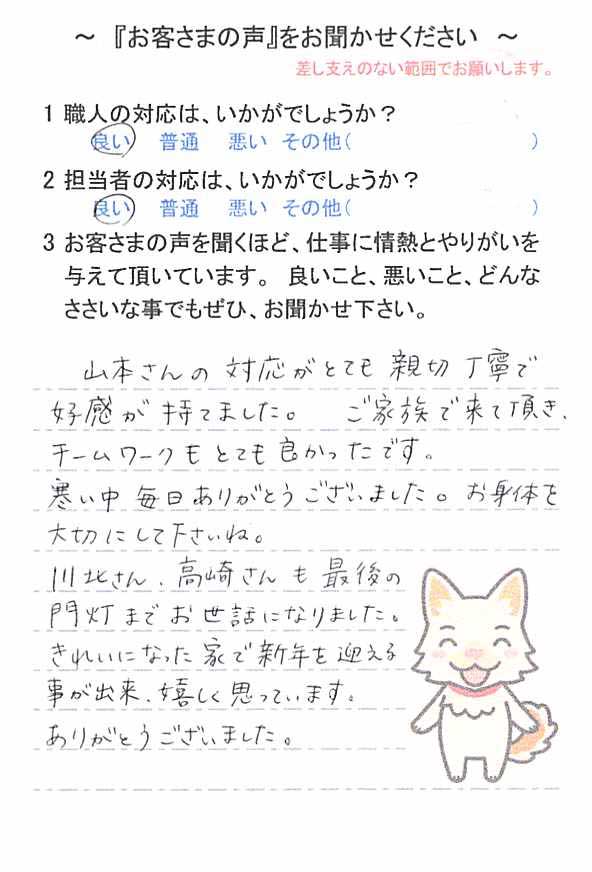 ～ 『お客さまの声』をお聞かせください ～
差し支えのない範囲でお願いします。
1 職人の対応は、いかがでしょうか？
良い 普通 悪い その他( )
2 担当者の対応は、いかがでしょうか？
良い 普通 悪い その他( )
3 お客さまの声を聞くほど、仕事に情熱とやりがいを
与えて頂いています。 良いこと、悪いこと、どんな
ささいな事でもぜひ、お聞かせ下さい。
山本さんの対応がとても親切丁寧で
好感が持てました。 ご家族で来て頂き、
チームワークもとても良かったです。
寒い中毎日ありがとうございました。お身体を
大切にして下さいね。
川北さん、高崎さんも最後の
門灯までお世話になりました。
きれいになった家で新年を迎える
事が出来、嬉しく思っています。
ありがとうございました。